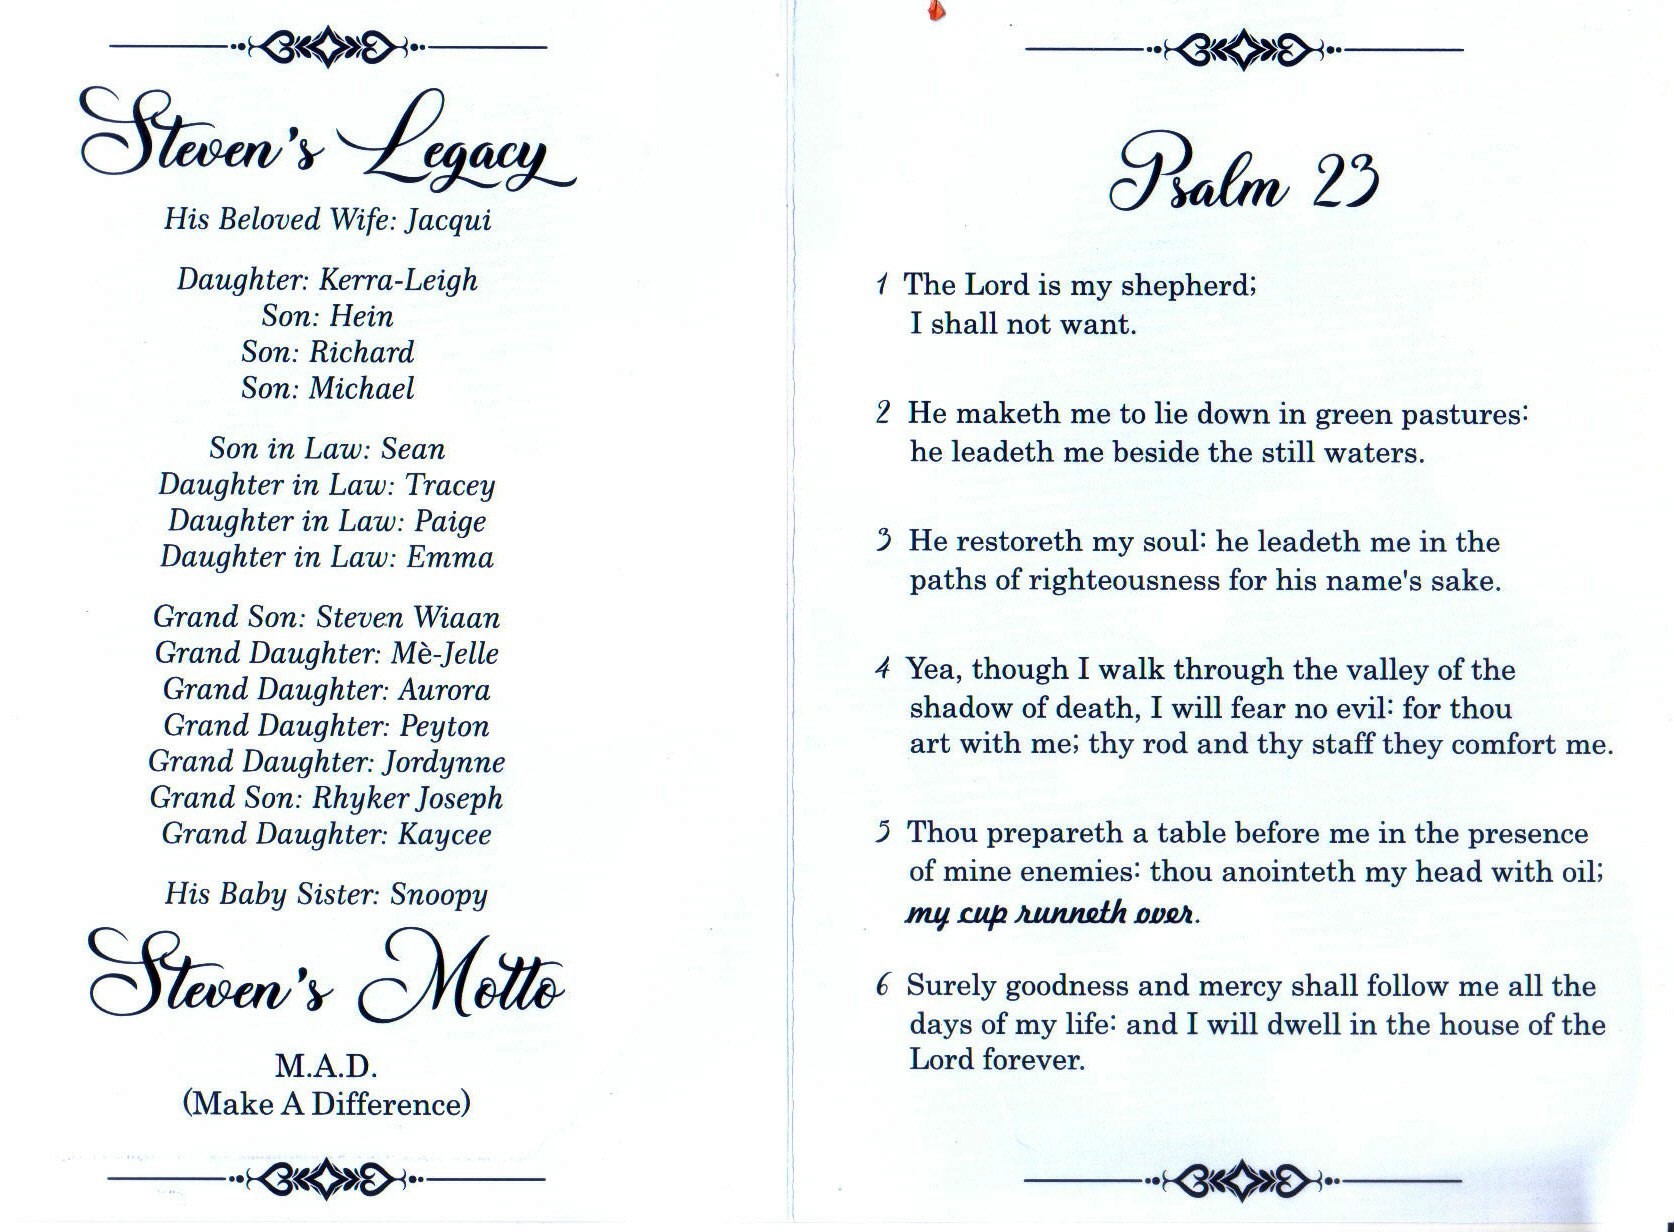 Steven's Legacy
His Beloved Wife: Jacqui
Daughter: Kerra-Leigh
Son: Hein
Son: Richard
Son: Michael
Son in Law: Sean
Daughter in Law: Tracey
Daughter in Law: Paige
Daughter in Law: Emma
Grand Son: Steven Wiaan
Grand Daughter: Mè-Jelle
Grand Daughter: Aurora
Grand Daughter: Peyton
Grand Daughter: Jordynne
Grand Son: Rhyker Joseph
Grand Daughter: Kaycee
His Baby Sister: Snoopy
Steven's Motto
M.A.D.
(Make A Difference)
Psalm 23
1 The Lord is my shepherd;
I shall not want.
2 He maketh me to lie down in green pastures:
he leadeth me beside the still waters.
3 He restoreth my soul: he leadeth me in the
paths of righteousness for his name's sake.
4 Yea, though I walk through the valley of the
shadow of death, I will fear no evil: for thou
art with me; thy rod and thy staff they comfort me.
5 Thou prepareth a table before me in the presence
of mine enemies: thou anointeth my head with oil;
my cup runneth over.
6 Surely goodness and mercy shall follow me all the
days of my life: and I will dwell in the house of the
Lord forever.